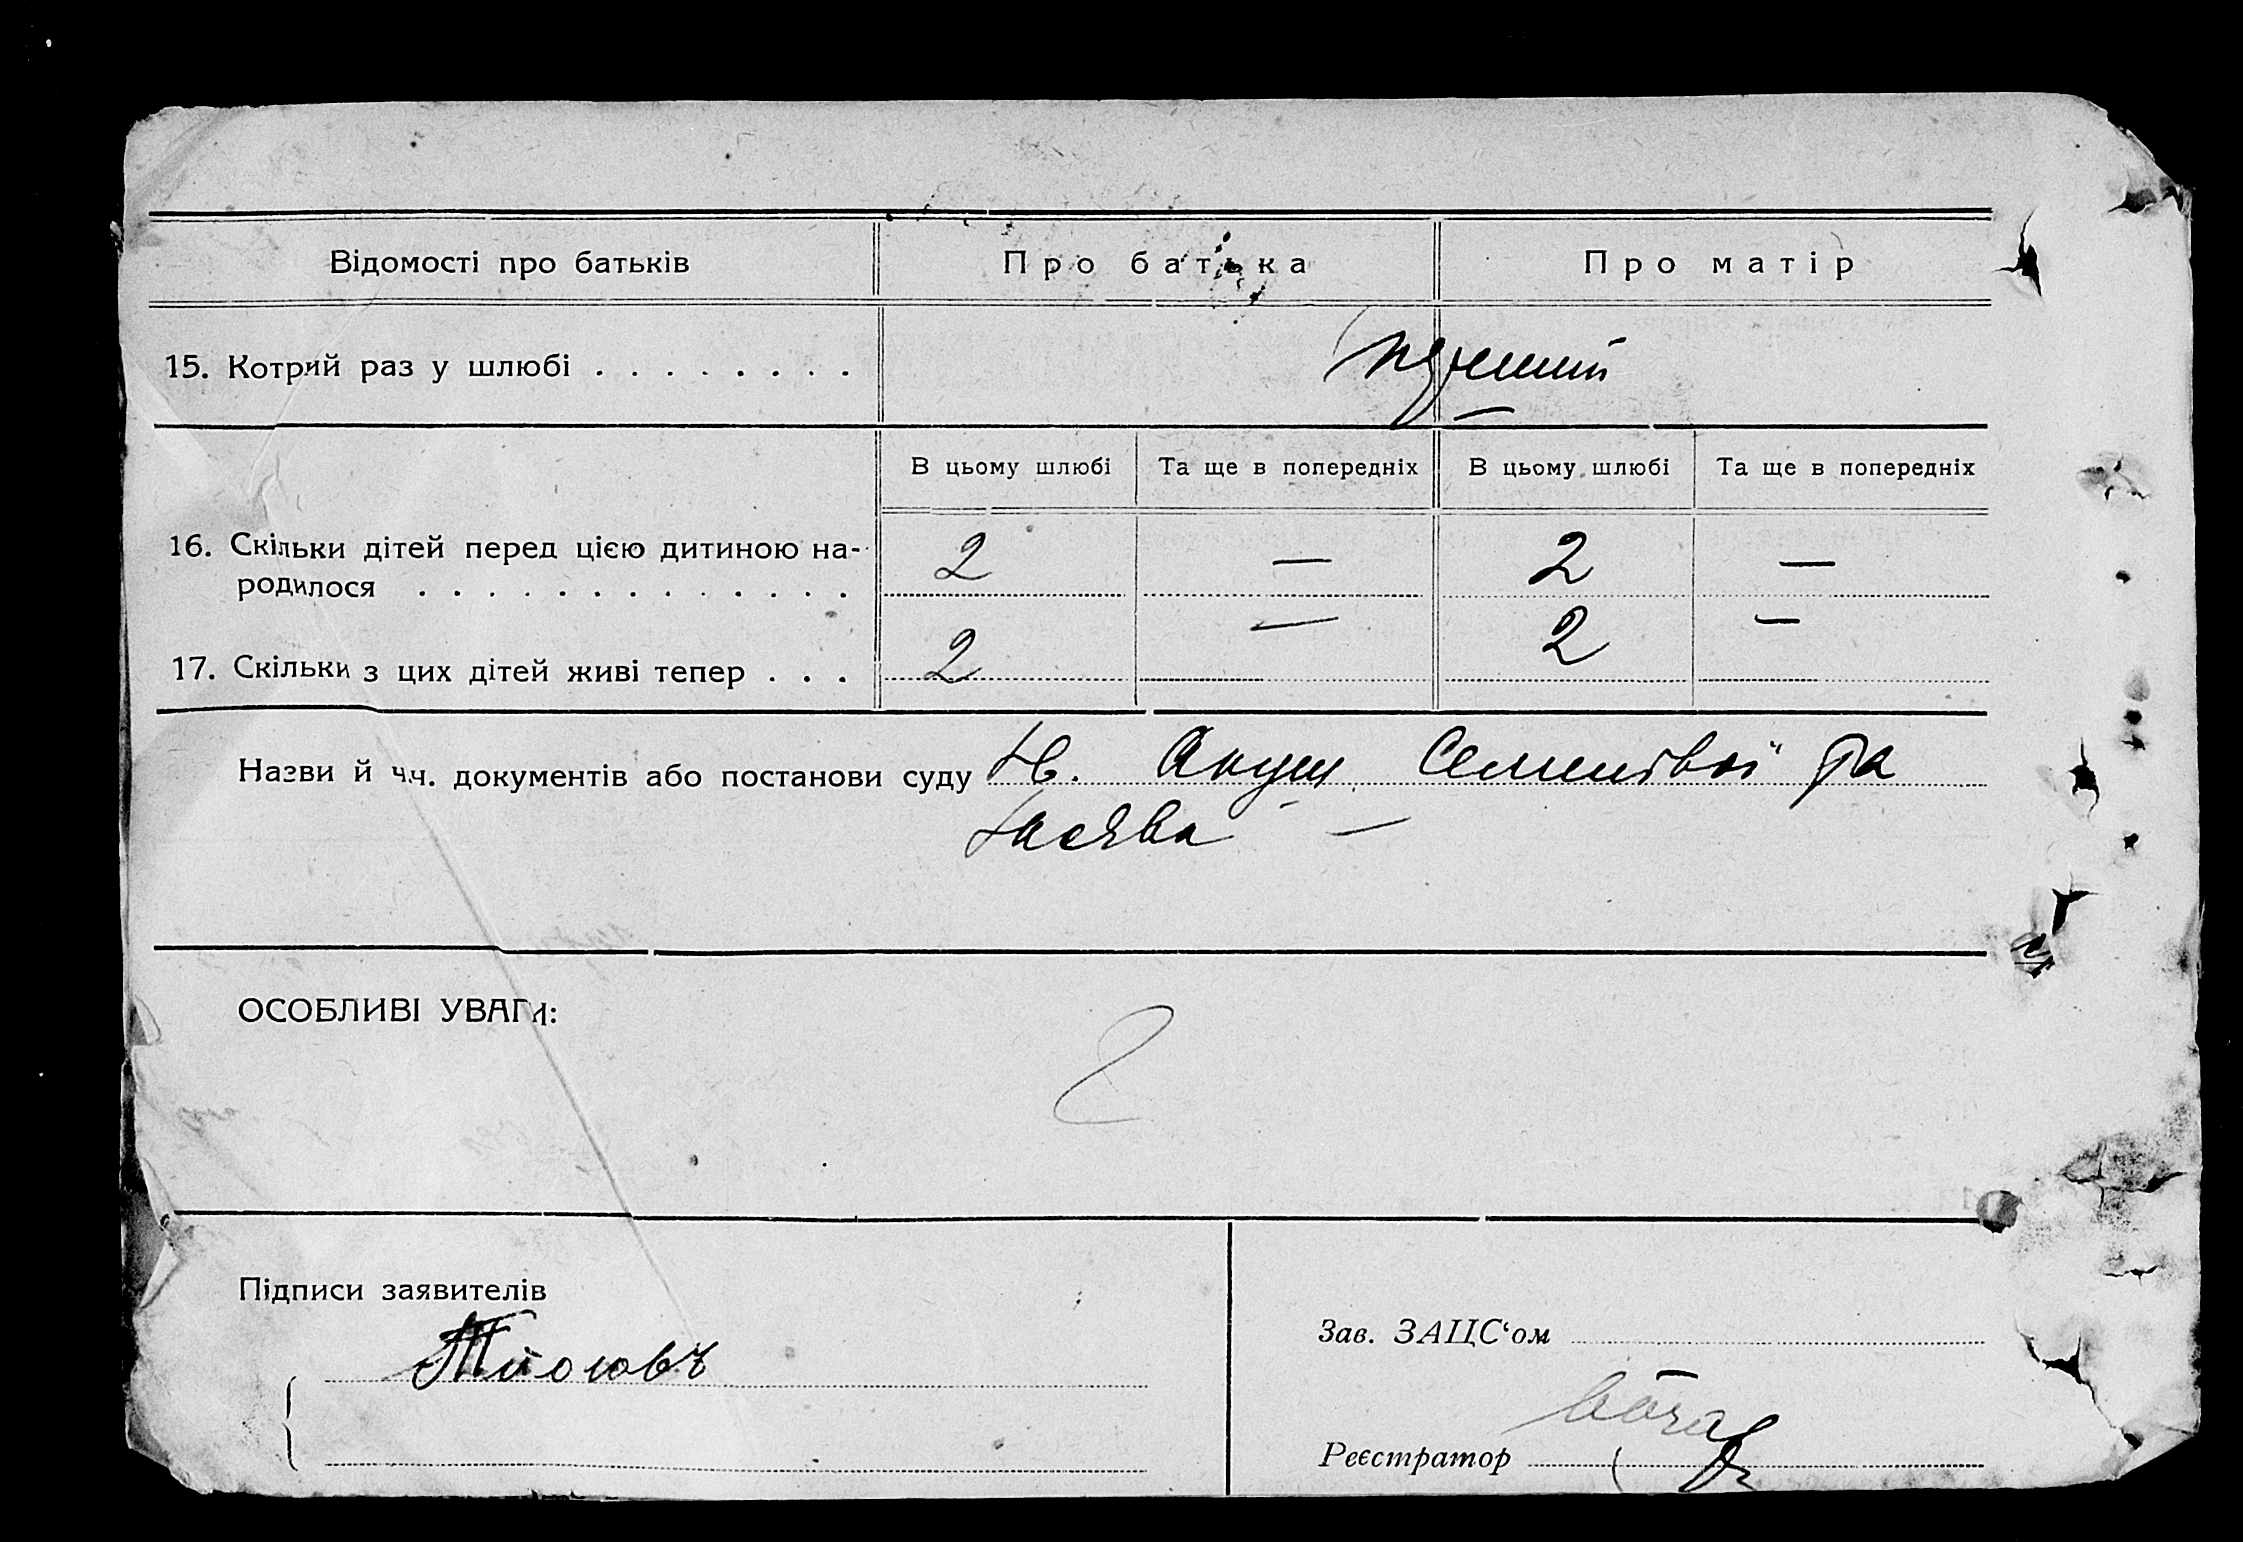 Відомості про батьків Про батька Про матір
15. Котрий раз у шлюбі . . . . . . . . перший
В цьому шлюбі Та ще в попередніх В цьому шлюбі Та ще в попередніх
16. Скільки дітей перед цією дитиною на-
родилося . . . . . . . . . . . . . 2 — 2 —
17. Скільки з цих дітей живі тепер . . . 2 — 2 —
Назви й ч.ч. документів або постанови суду Акуш Семенівої та
заява —
ОСОБЛИВІ УВАГИ:
Підписи заявителів
Зав. ЗАЦС'ом
Реєстратор